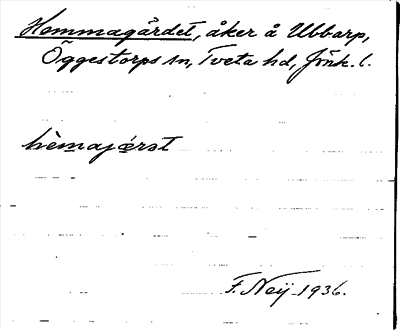 Hemmagärdet, åker å Ubbarp,
Öggestorps sn, Tveta hd, Jönk. l.
hèmajærst
F. Neij 1936.